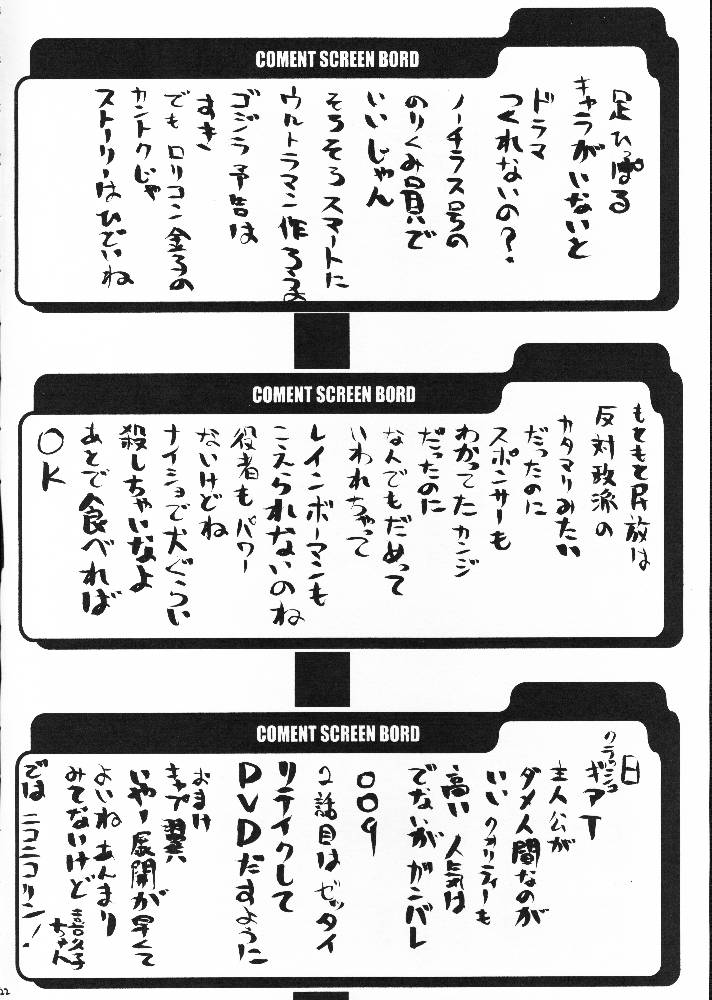 COMENT SCREEN BORD
足ひっぱる
キャラがいないと
ドラマ
つくれないの?
ノーチラス号の
のりくみ員で
いいじゃん
そろそろスマートに
ウルトラマン作ろうよ
ゴジラ予告は
すき、
でもロリコン金子の
カントクじゃ
ストーリーはひどいね
COMENT SCREEN BORD
もともと民放は
反対政派の
カタマリみたい
だったのに
スポンサーも
わかってたカンジ
だったのに
なんでもだめって
いわれちゃって
レインボーマンも
こえられないのね
役者もパワー
ないけどね
ナイショで犬ぐらい
殺しちゃいなよ
あとで食べれば
OK
COMENT SCREEN BORD
日
クラッシュ
ギアT
主人公が
ダメ人間なのが
いいクオリティーも
高い人気は
でないがガンバレ
009
2話目はゼッタイ
リテイクして
DVDだすように
おまけ
キャプ翼
いやー展開が早くて
よいねあんまり
みてないけど
喜久子
ちゃん
では ニコニコリン!
22